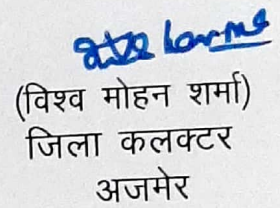 (विश्व मोहन शर्मा)
जिला कलक्टर
अजमेर